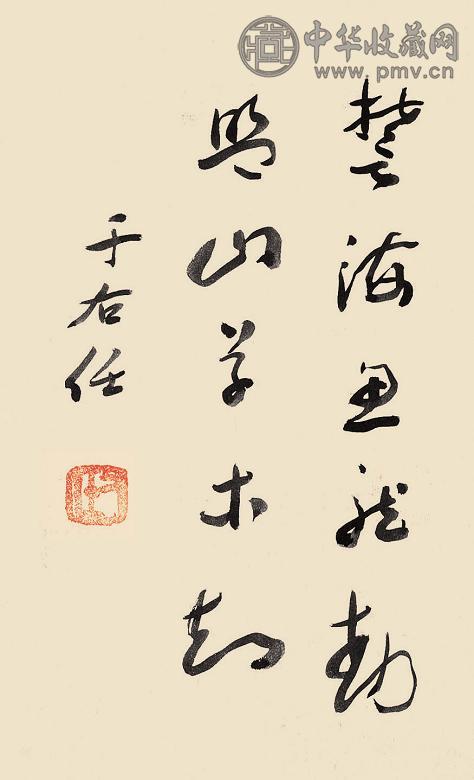 中华收藏网
www.pmv.cn
誓海鱼龙动
盟山草木知
于右任